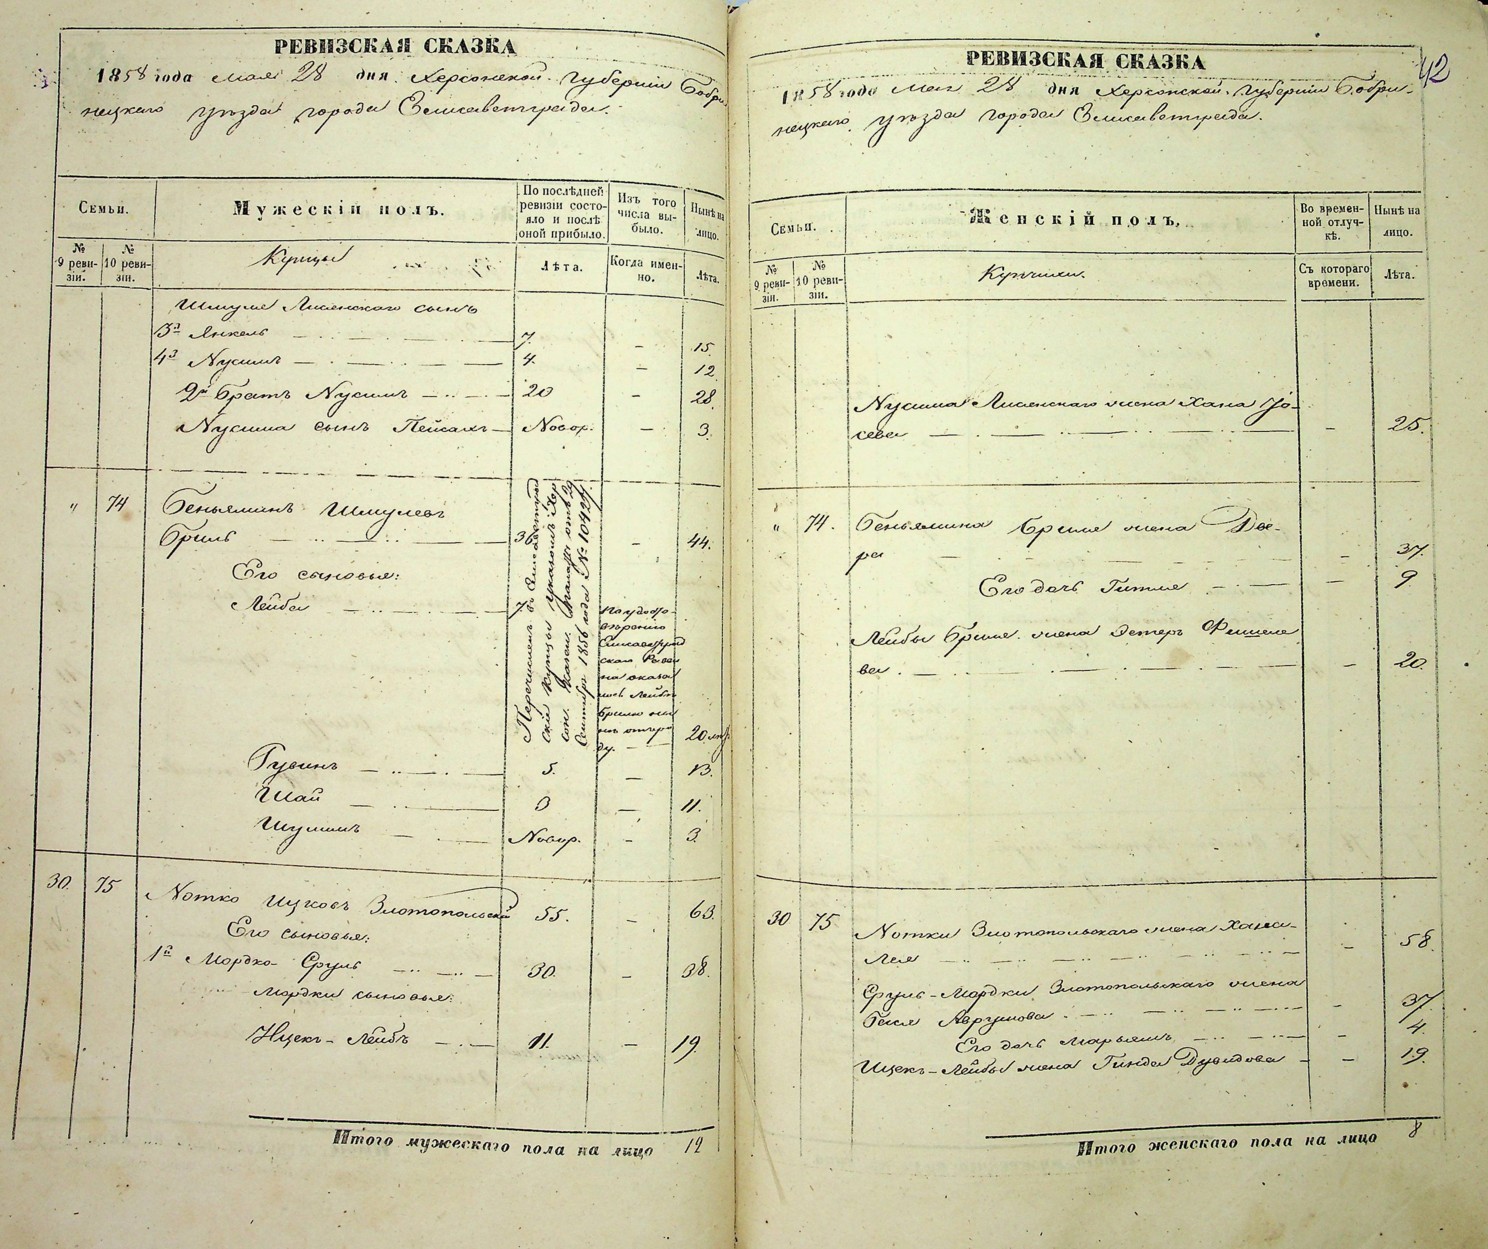 РЕВИЗСКАЯ СКАЗКА
1858 года мая 28 дня Херсонской губернии Бобри-
нецкаго уезда города Елисаветграда.
Семьи.
Мужескій полъ.
По послѣдней ревизіи состояло и послѣ оной прибыло.
Изъ того числа выбыло.
Нынѣ на лицо.
№ 9 ревизіи.
№ 10 ревизіи.
Купцы
Лѣта.
Когда именно.
Лѣта.
Шмуля Лисянскаго сынъ
3й Янкель 7. — 15.
4й Нусимъ 4. — 12
2й Братъ Нусимъ 20 — 28.
Нусима сынъ Пейсахъ Новор. — 3.
" 74 Беньяминъ Шмулевъ
Бриль 36 — 44.
Его сыновья:
Лейба 7.
Перечисленъ въ Елисаветград
скіе купцы указомъ Хер
сон. Казен. Палаты отъ 29
Сентября 1856 года № 10427.
По удосто-
веренію
Елисаветград
ской
на оказа
лось Лейбѣ
Брилю
ду. 20 лѣт
Рувинъ 5. — 13.
Шай 3 — 11.
Шулимъ Новор. — 3.
30. 75 Нотко Ицковъ Злотопольскій 55. — 63.
Его сыновья:
1й Мордко-Сруль 30. — 38.
Мордки сыновья:
Ицекъ-Лейбъ 11. — 19.
Итого мужескаго пола на лицо 12
РЕВИЗСКАЯ СКАЗКА
42
1858 года мая 28 дня Херсонской губернии Бобри-
нецкаго уѣзда города Елисаветграда.
Семьи.
Женскій полъ.
Во временной отлучкѣ.
Нынѣ на лицо.
№ 9 ревизіи.
№ 10 ревизіи.
Купчихи.
Съ котораго времени.
Лѣта.
Нусима Лисянскаго жена Хана Іо-
сева — 25.
" 74. Беньямина Бриля жена Дво-
ра — 37.
Его дочь Гитля — 9
Лейбы Бриля жена Эстеръ Фишеле
ва. — 20.
30 75 Нотки Злотопольскаго жена Хана-
Лея — 58.
Сруль-Мордки Злотопольскаго жена
Бася Аврумова. — 37.
Его дочь Марьямъ — 4.
Ицекъ-Лейбы жена Гинда Дувидова — 19.
Итого женскаго пола на лицо 8